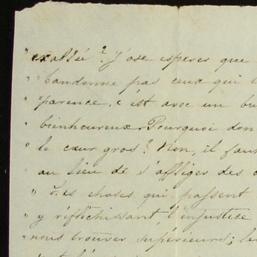 exaltée ? J'ose espérer que
" bandonne pas ceux qui
" parence. c'est avec un bu
" bienheureux. Pourquoi don
" le cœur gros ? Non, il faut
" au lieu de s'affliger des
" Les choses qui passent
" y réfléchissant, l'injustice
nous trouver supérieurs; le